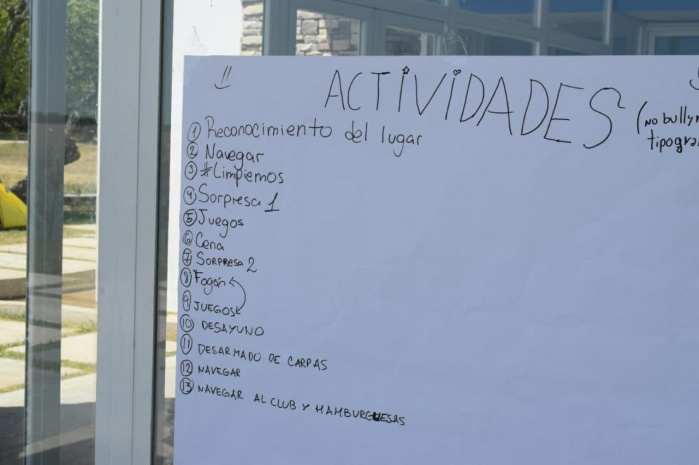 ACTIVIDADES
(no bullyn
tipogra
1 Reconocimiento del lugar
2 Navegar
3 #Limpiemos
4 Sorpresa 1
5 Juegos
6 Cena
7 SORPRESA 2
8 Fogón
9 JUEGOS
10 DESAYUNO
11 DESARMADO DE CARPAS
12 NAVEGAR
13 NAVEGAR AL CLUB Y HAMBURGUESAS